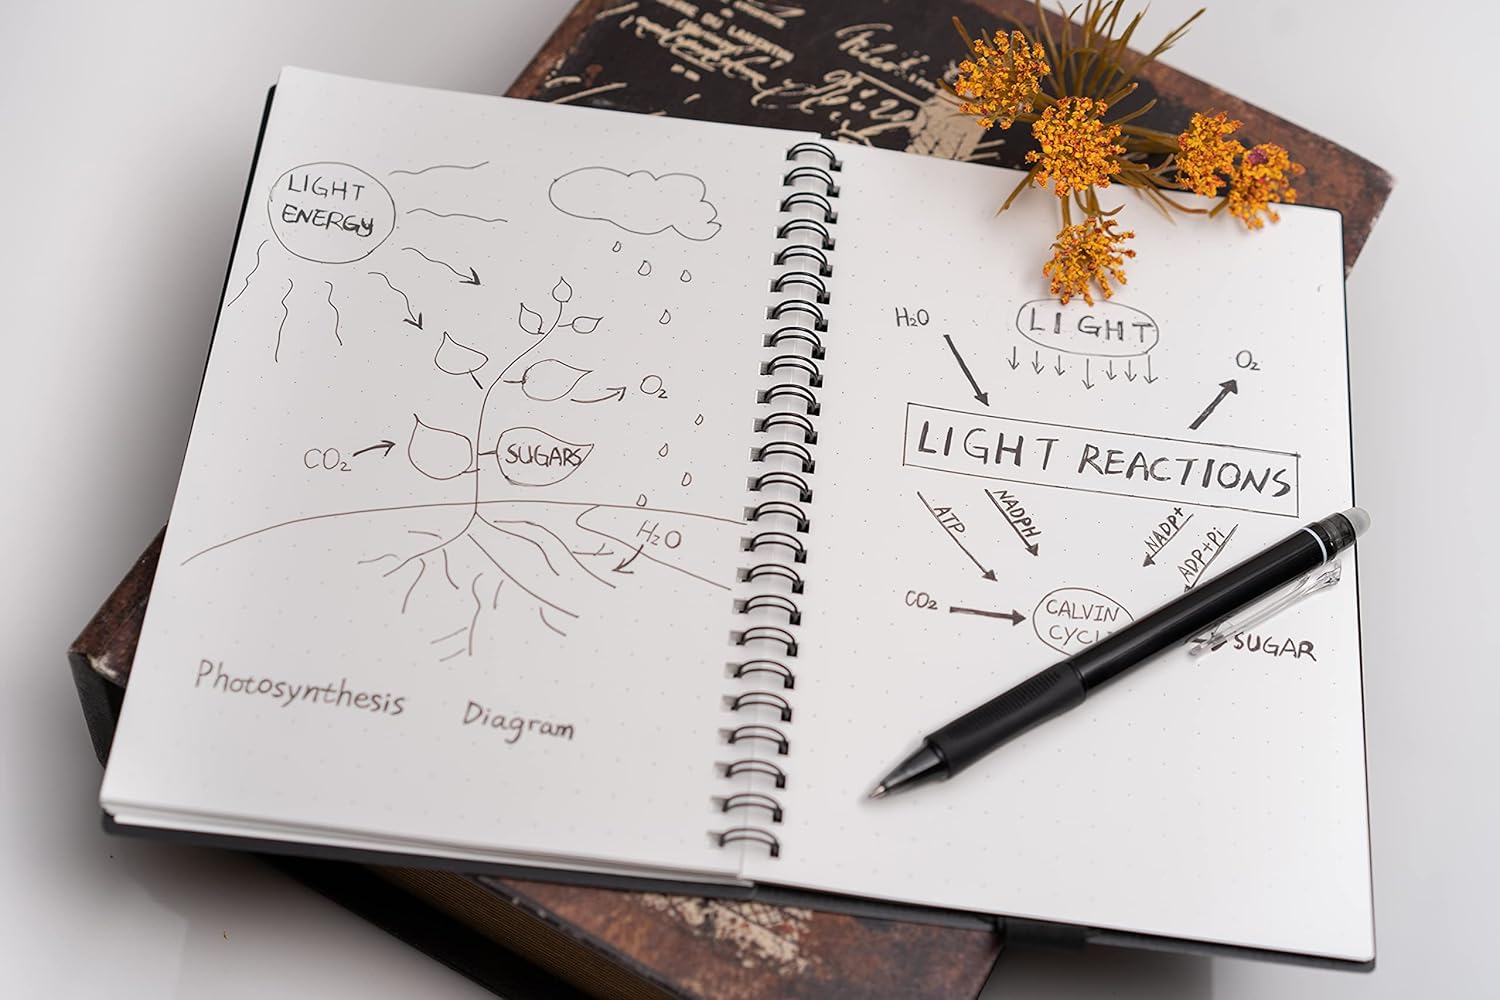 LIGHT
ENERGY
O₂
CO₂
SUGARS
H₂O
Photosynthesis Diagram
H₂O
LIGHT
O₂
LIGHT REACTIONS
ATP
NADPH
NADP+
ADP+Pi
CO₂
CALVIN
SUGAR